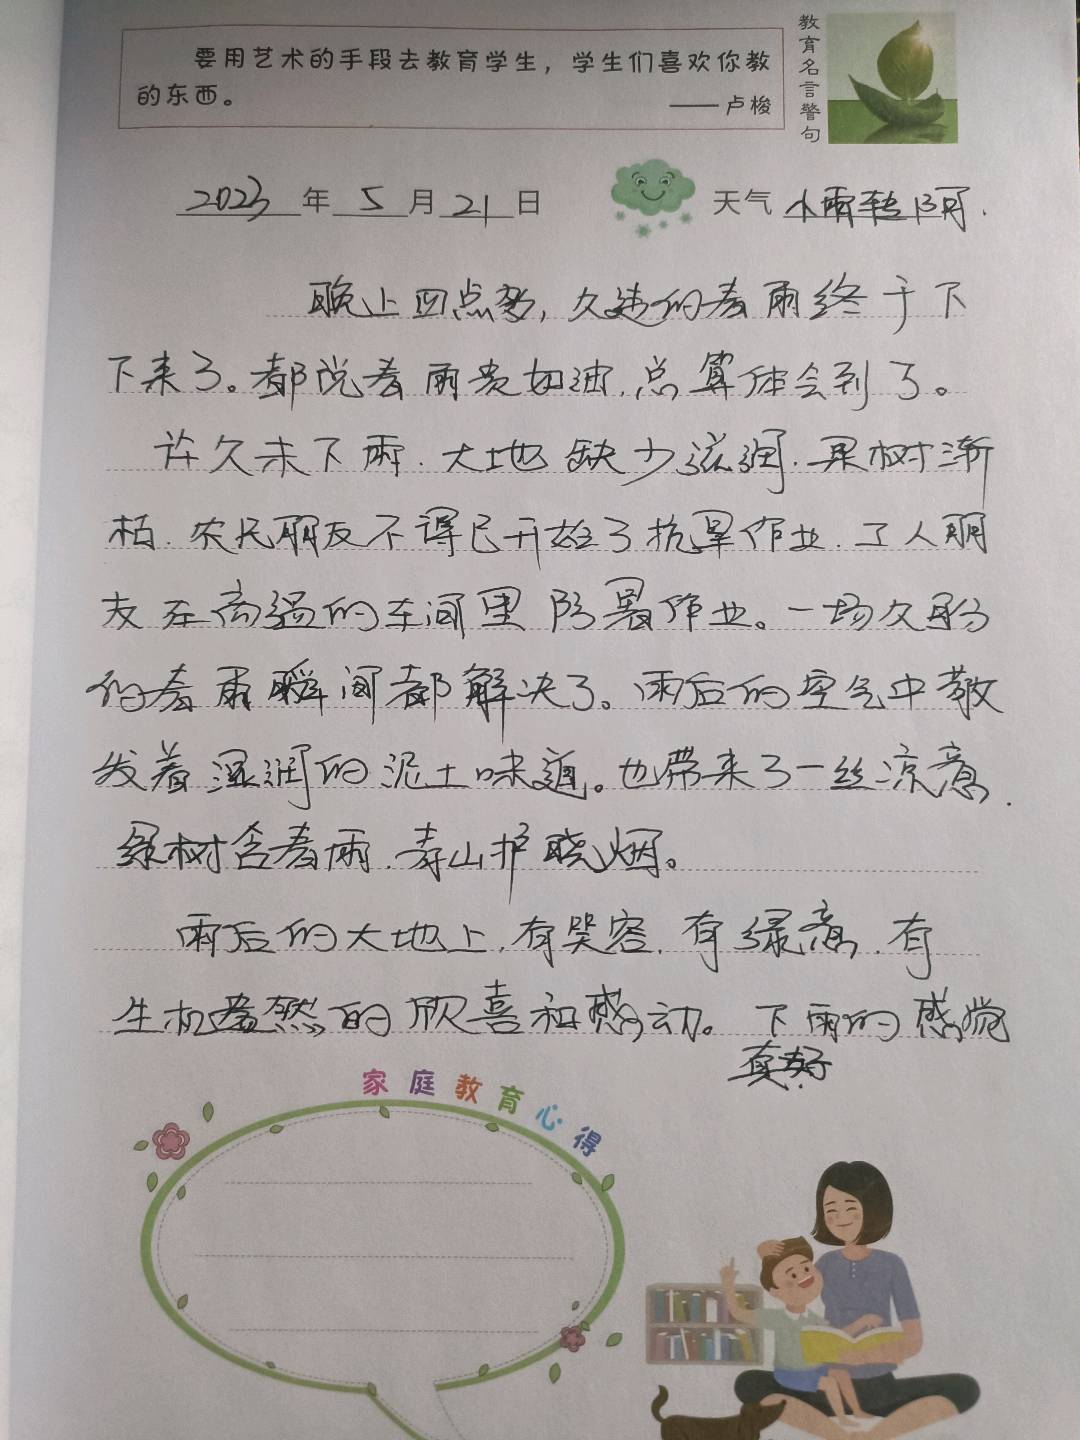 要用艺术的手段去教育学生，学生们喜欢你教
的东西。
—— 卢梭
教育名言警句
2023年5月21日
天气 小雨转阴.
晚上四点多，久违的春雨终于下
下来了。都说春雨贵如油，总算体会到了。
许久未下雨，大地缺少滋润，果树渐
枯，农民朋友不得已开始了抗旱作业，工人朋
友在高温的车间里防暑作业。一场久盼
的春雨瞬间都解决了。雨后的空气中散
发着湿润的泥土味道。也带来了一丝凉意.
绿树含春雨，青山护晓烟。
雨后的大地上，有笑容，有绿意，有
生机盎然的欣喜和感动。下雨的感觉
真好
家庭教育心得